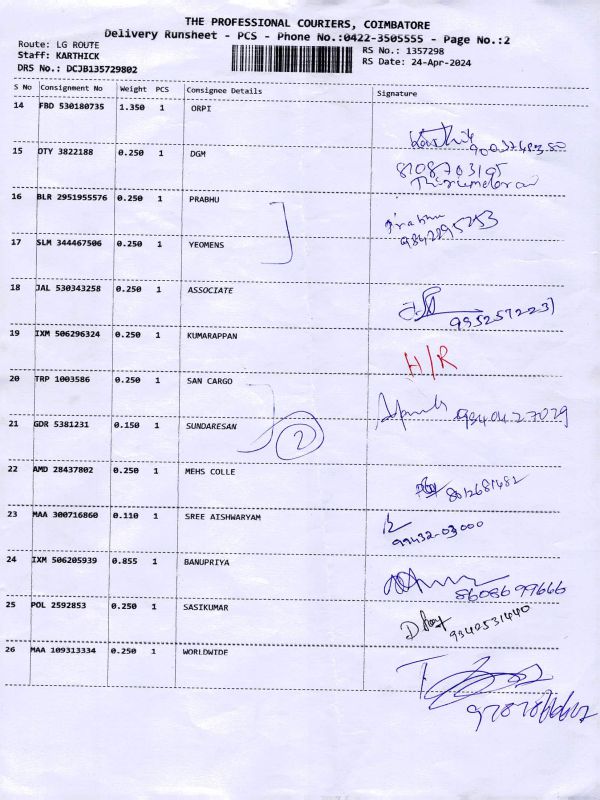 THE PROFESSIONAL COURIERS, COIMBATORE
Delivery Runsheet - PCS - Phone No.:0422-3505555 - Page No.:2
Route: LG ROUTE
Staff: KARTHICK
DRS No.: DCJB135729802
RS No.: 1357298
RS Date: 24-Apr-2024
S No Consignment No Weight PCS Consignee Details Signature
14 FBD 530180735 1.350 1 ORPI
15 DTY 3822188 0.250 1 DGM
8108703195
16 BLR 2951955576 0.250 1 PRABHU
Prabhu
9842295253
17 SLM 344467506 0.250 1 YEOMENS
18 JAL 530343258 0.250 1 ASSOCIATE
9952572231
19 IXM 506296324 0.250 1 KUMARAPPAN
H/R
20 TRP 1003586 0.250 1 SAN CARGO
9840427029
21 GDR 5381231 0.150 1 SUNDARESAN
2
22 AMD 28437802 0.250 1 MEHS COLLE
8012681482
23 MAA 300716860 0.110 1 SREE AISHWARYAM
99432-03000
24 IXM 506205939 0.855 1 BANUPRIYA
8608699666
25 POL 2592853 0.250 1 SASIKUMAR
9340531440
26 MAA 109313334 0.250 1 WORLDWIDE